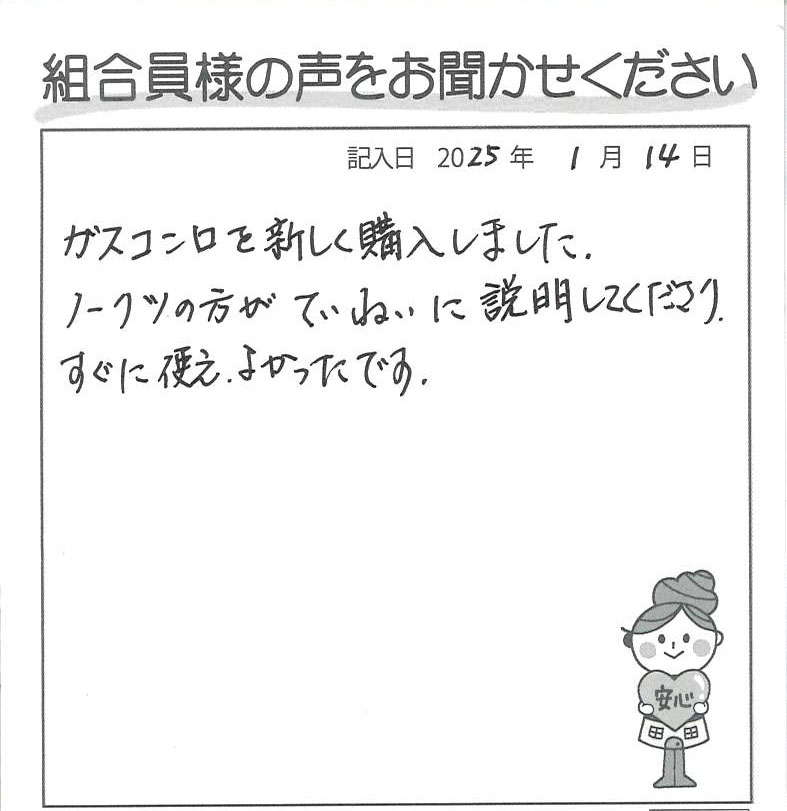 組合員様の声をお聞かせください
記入日 2025年 1月 14日
ガスコンロを新しく購入しました.
ノークツの方が ていねいに 説明してくださり.
すぐに使え.よかったです.
安心